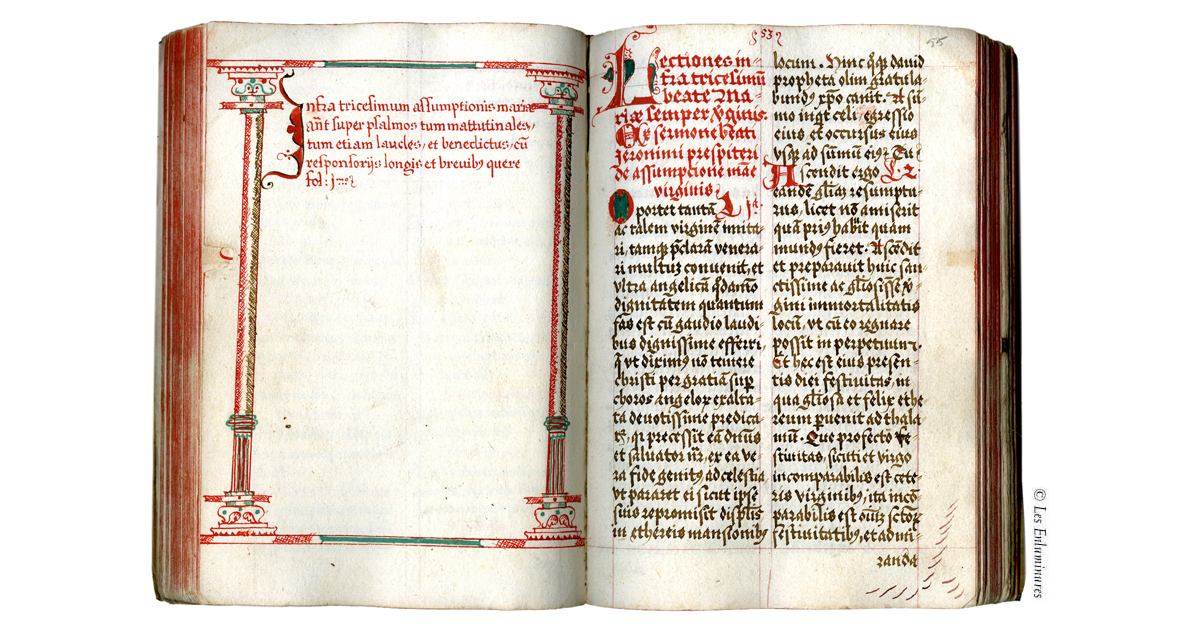 Infra tricesimum assumptionis marie
ant̄ super psalmos tum mattutinales,
tum etiam laudes, et benedictus, cū
responsorijs longis et brevibꝰ quere
fol:
53
55
Lectiones in-
fra tricesimū
beate Ma-
riæ semper v̄ginis.
Ex sermone beati
Jeronimi prespiteri
de assumptione mariæ
virginis
Oportet tantā L. jᵃ.
ac talem virginē imita-
ri, tamqꝫ p̄claram venera-
ri multuꝫ convenit, et
ultra angelicā qdāmō
dignitatem quantum
fas est cū gaudio laudi-
bus dignissime efferri,
vt diximꝰ nō temere
christi per gratiam suꝑ
choros angeloꝝ exalta-
ta devotissime predica-
precessit eā dn̄us
et salvator nr̄, ex ea ve-
ra fide genitꝰ ad celestia
vt pararet ei sicut ipse
suis repromisit displis
in ethereis mansionibꝰ
locum. Hinc david
propheta olim gratula-
bundꝰ xp̄o canit. A sū-
mo inqt celi, egressio
eius et occursus eius
vsqꝫ ad sūmū eiꝰ Tu
Ascendit ergo L. 2.
eandē gl̄iaꝫ resumptu-
rus, licet nō amiserit
quā priꝰ habuit quam
mundꝰ fieret. Ascēdit
et preparavit huic san-
ctissime ac gl̄iosissē v̄-
gini immortalitatis
locū, vt cū eo regnare
possit in perpetuum.
Et hec est eius presen-
tis diei festivitas, in
qua gl̄iosa et felix ethe-
reum pervenit ad thala-
mū. Que profecto fe-
stivitas, sicuti et virgo
incomparabilis est cete-
ris virginibꝰ, ita incō-
parabilis est oīuꝫ sctoꝝ
festivitatibꝰ, et admi-
randa
© Les Enluminures